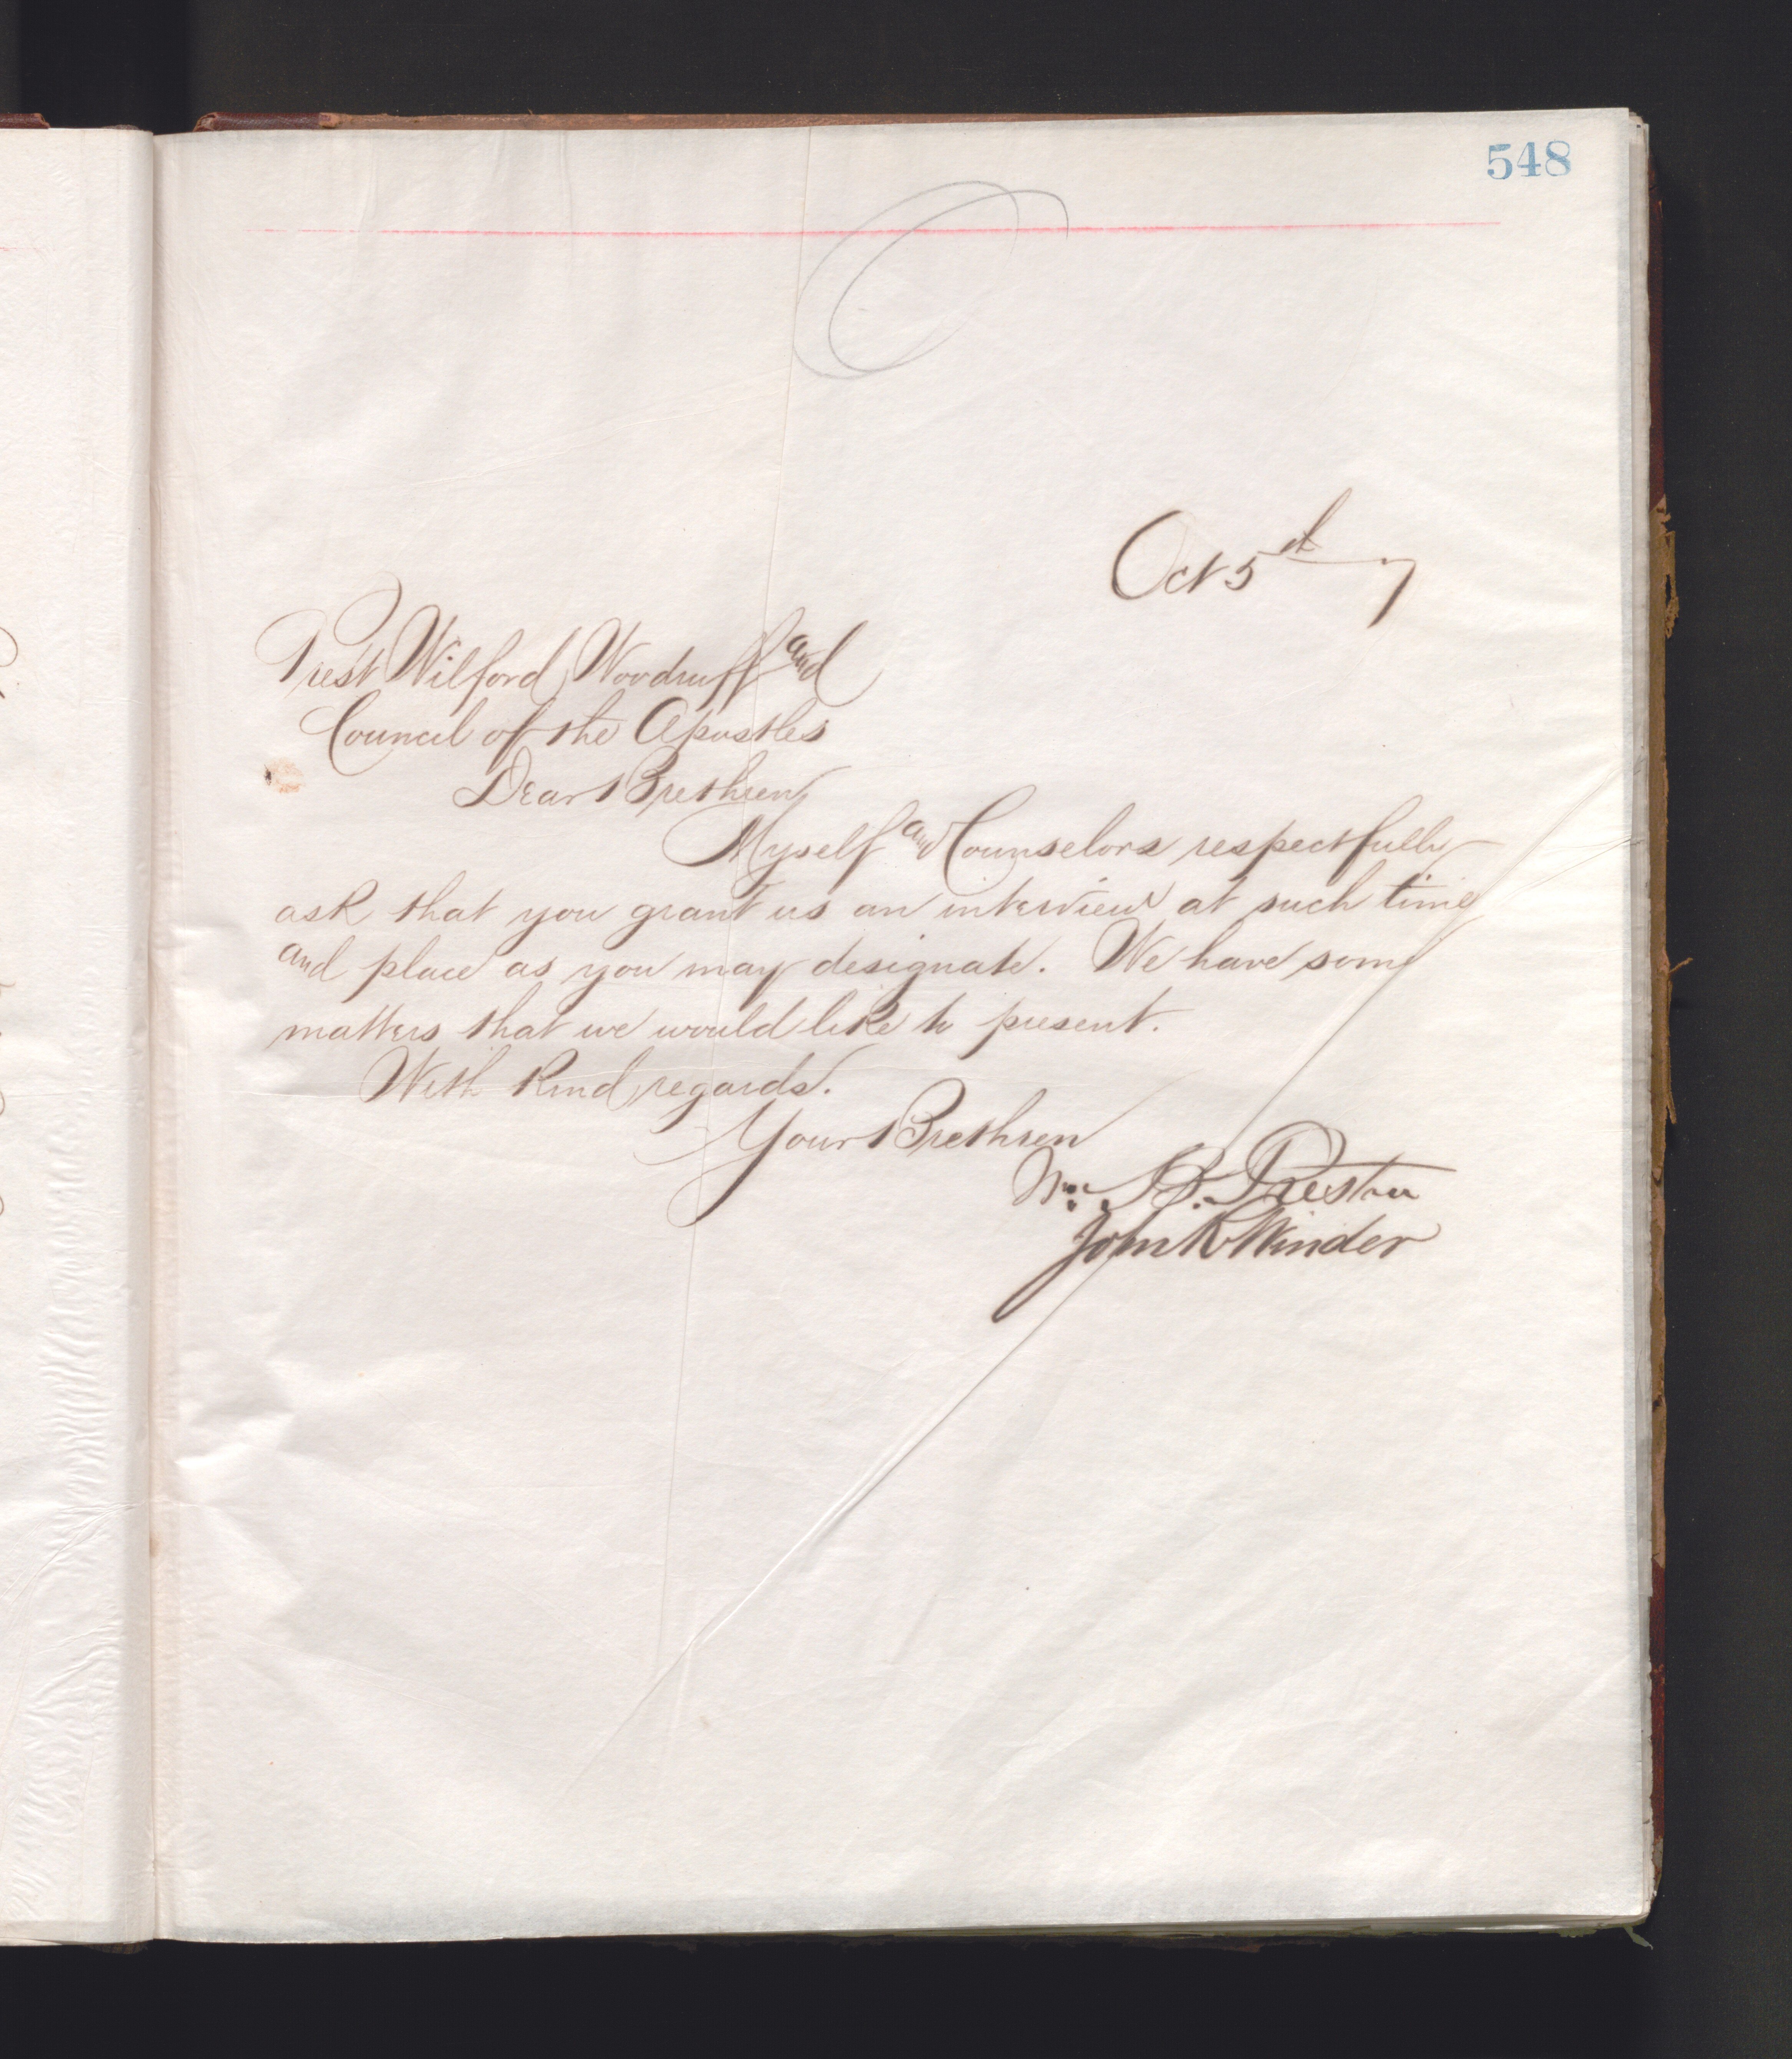 548
Oct 5th 7
Prest Wilford Woodruff and
Council of the Apostles
Dear Brethren
Myself and Counselors respectfully
ask that you grant us an interview at such time
and place as you may designate. We have some
matters that we would like to present.
With kind regards.
Your Brethren
Wm. B. Preston
John R Winder